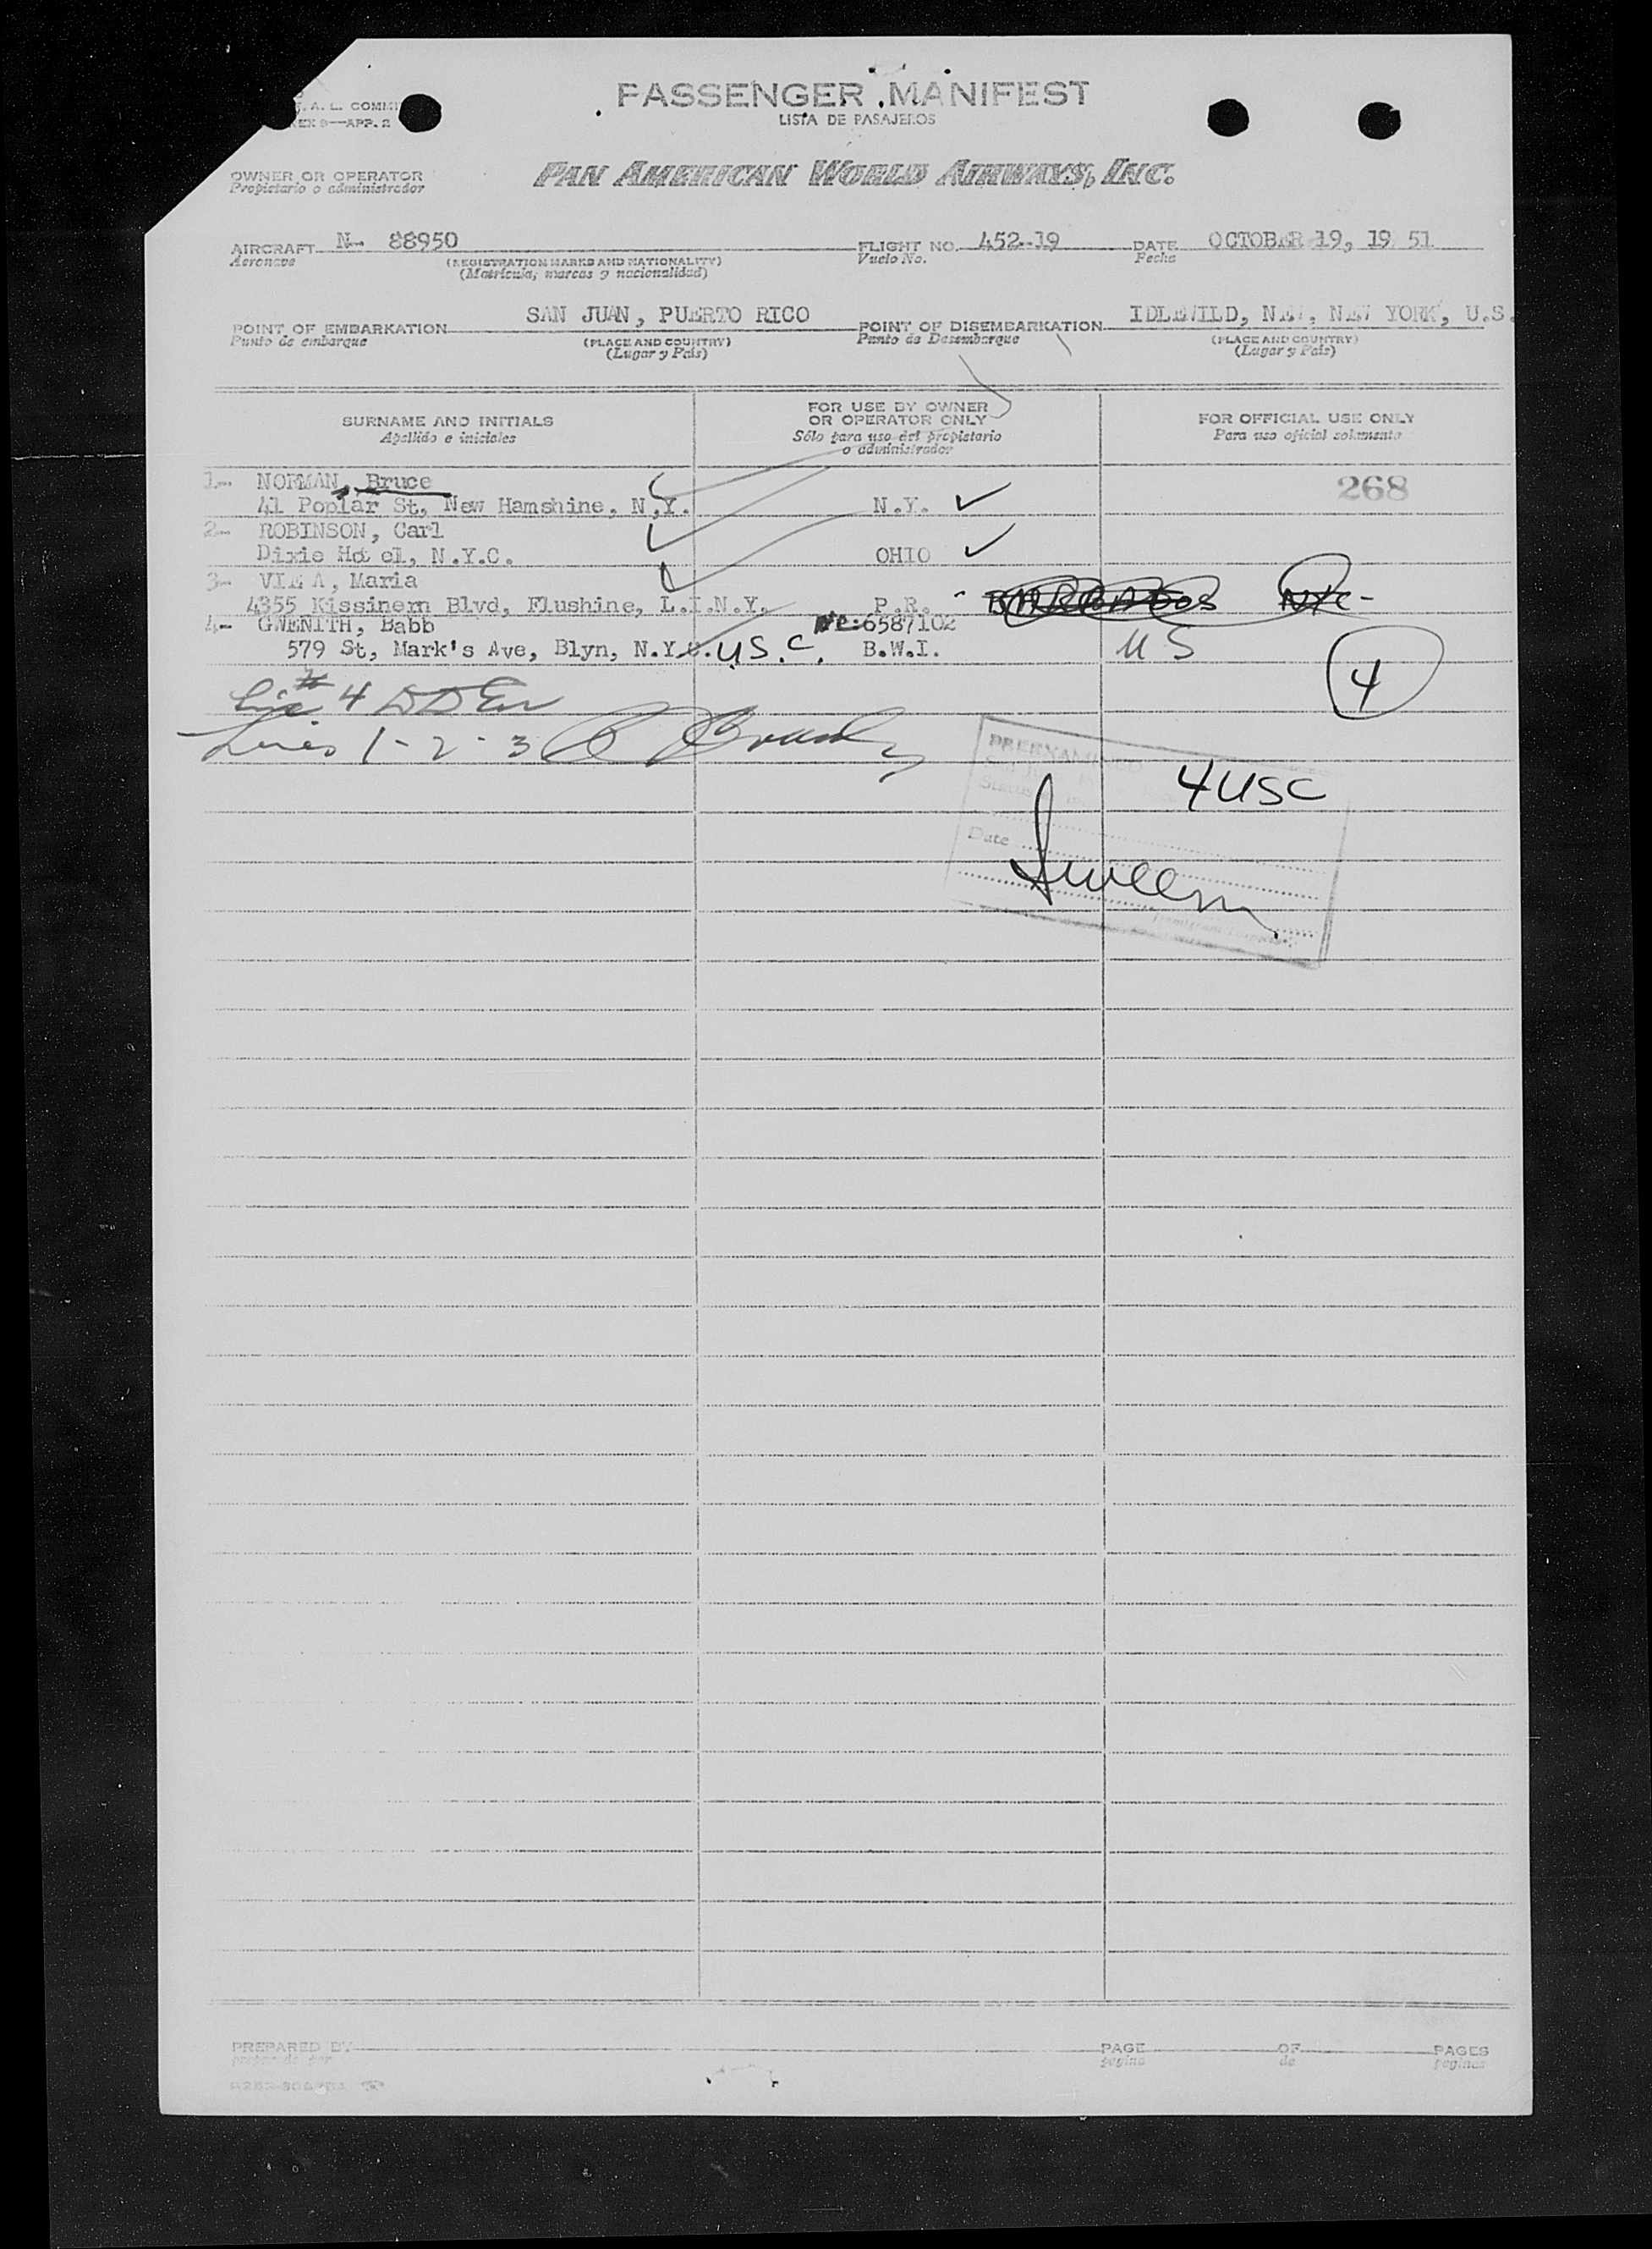 .A. L. COMMI
EX 9—APP. 2
PASSENGER MANIFEST
LISTA DE PASAJEROS
OWNER OR OPERATOR
Propietario o administrador
PAN AMERICAN WORLD AIRWAYS, INC.
AIRCRAFT N- 88950 FLIGHT NO. 452-19 DATE OCTOBER 19, 19 51
Aeronave (REGISTRATION MARKS AND NATIONALITY) Vuelo No. Fecha
(Matrícula, marcas y nacionalidad)
POINT OF EMBARKATION SAN JUAN, PUERTO RICO POINT OF DISEMBARKATION IDLEWILD, NEW, NEW YORK, U.S.
Punto de embarque (PLACE AND COUNTRY) Punto de Desembarque (PLACE AND COUNTRY)
(Lugar y País) (Lugar y País)
SURNAME AND INITIALS FOR USE BY OWNER OR OPERATOR ONLY FOR OFFICIAL USE ONLY
Apellido e iniciales Sólo para uso del propietario o administrador Para uso oficial solamente
1- NORMAN, Bruce 268
41 Poplar St, New Hamshine, N.Y. N.Y. ✓
2- ROBINSON, Carl
Dixie Hotel, N.Y.C. OHIO ✓
3- Maria
4355 Kissinem Blvd, Flushine, L.I.N.Y. P.R. - BARBADOS NYC-
4- GWENITH, Babb NC:6587102
579 St, Mark's Ave, Blyn, N.Y. U.S.C. B.W.I. US
4
# 4
Lines 1-2-3
4USC
Date
PREPARED BY PAGE OF PAGES
página de páginas